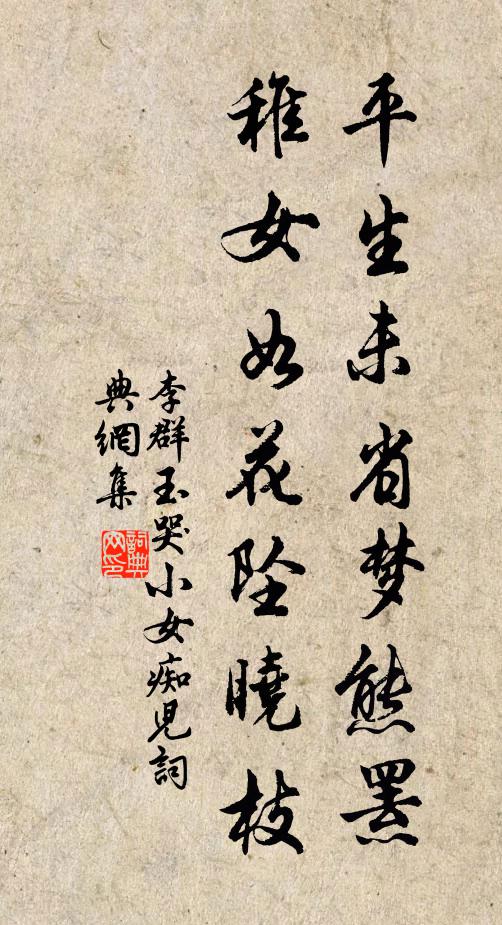 平生未省梦熊罴
稚女如花坠晓枝
李群玉哭小女痴儿词
典網集
詞典网印